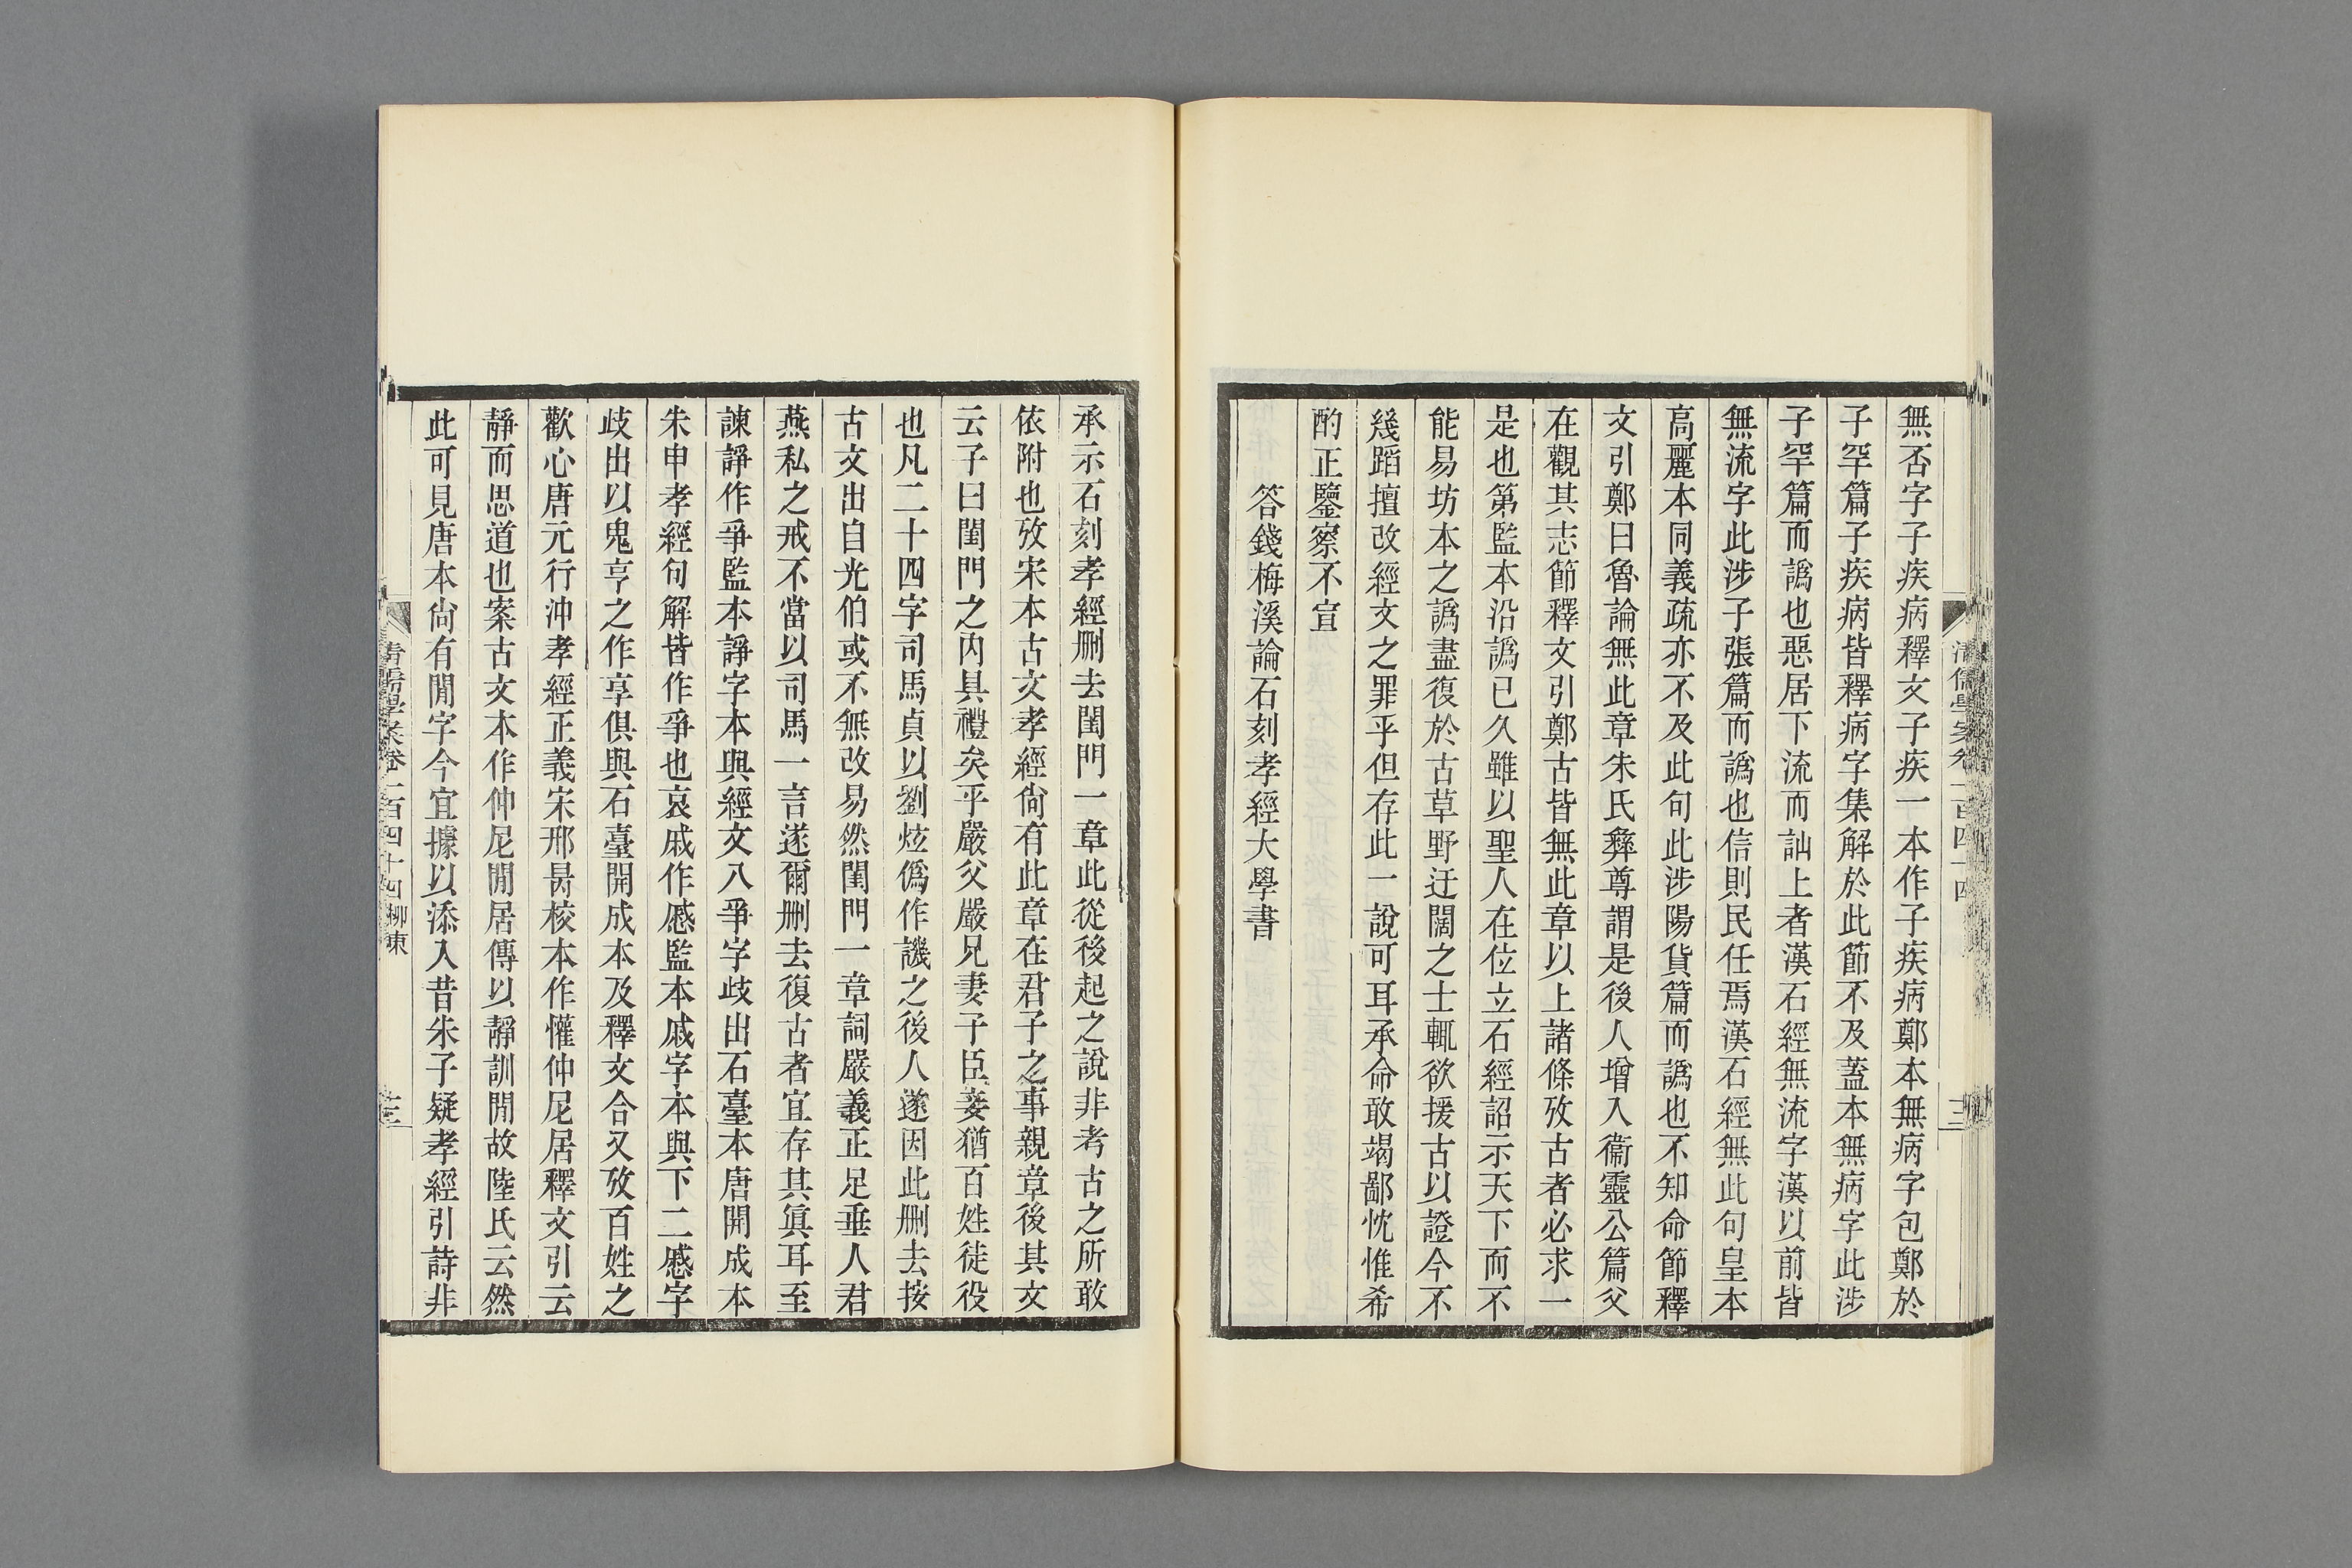 無否字子疾病釋文子疾一本作子疾病鄭本無病字包鄭於
子罕篇子疾病皆釋病字集解於此節不及蓋本無病字此涉
子罕篇而譌也惡居下流而訕上者漢石經無流字漢以前皆
無流字此涉子張篇而譌也信則民任焉漢石經無此句皇本
高麗本同義疏亦不及此句此涉陽貨篇而譌也不知命節釋
文引鄭曰魯論無此章朱氏彝尊謂是後人增入衞靈公篇父
在觀其志節釋文引鄭古皆無此章以上諸條攷古者必求一
是也第監本沿譌已久雖以聖人在位立石經詔示天下而不
能易坊本之譌盡復於古草野迂闊之士輒欲援古以證今不
幾蹈擅改經文之罪乎但存此一說可耳承命敢竭鄙忱惟希
酌正鑒察不宣
答錢梅溪論石刻孝經大學書
承示石刻孝經刪去閨門一章此從後起之說非考古之所敢
依附也攷宋本古文孝經尙有此章在君子之事親章後其文
云子曰閨門之內具禮矣乎嚴父嚴兄妻子臣妾猶百姓徒役
也凡二十四字司馬貞以劉炫僞作譏之後人遂因此刪去按
古文出自光伯或不無改易然閨門一章詞嚴義正足垂人君
燕私之戒不當以司馬一言遂爾刪去復古者宜存其眞耳至
諫諍作爭監本諍字本與經文八爭字歧出石臺本唐開成本
朱申孝經句解皆作爭也哀戚作慼監本戚字本與下二慼字
歧出以鬼亨之作享俱與石臺開成本及釋文合又攷百姓之
歡心唐元行沖孝經正義宋邢昺校本作懽仲尼居釋文引云
靜而思道也案古文本作仲尼閒居傳以靜訓閒故陸氏云然
此可見唐本尙有閒字今宜據以添入昔朱子疑孝經引詩非
清儒學案卷一百四十四 柳東